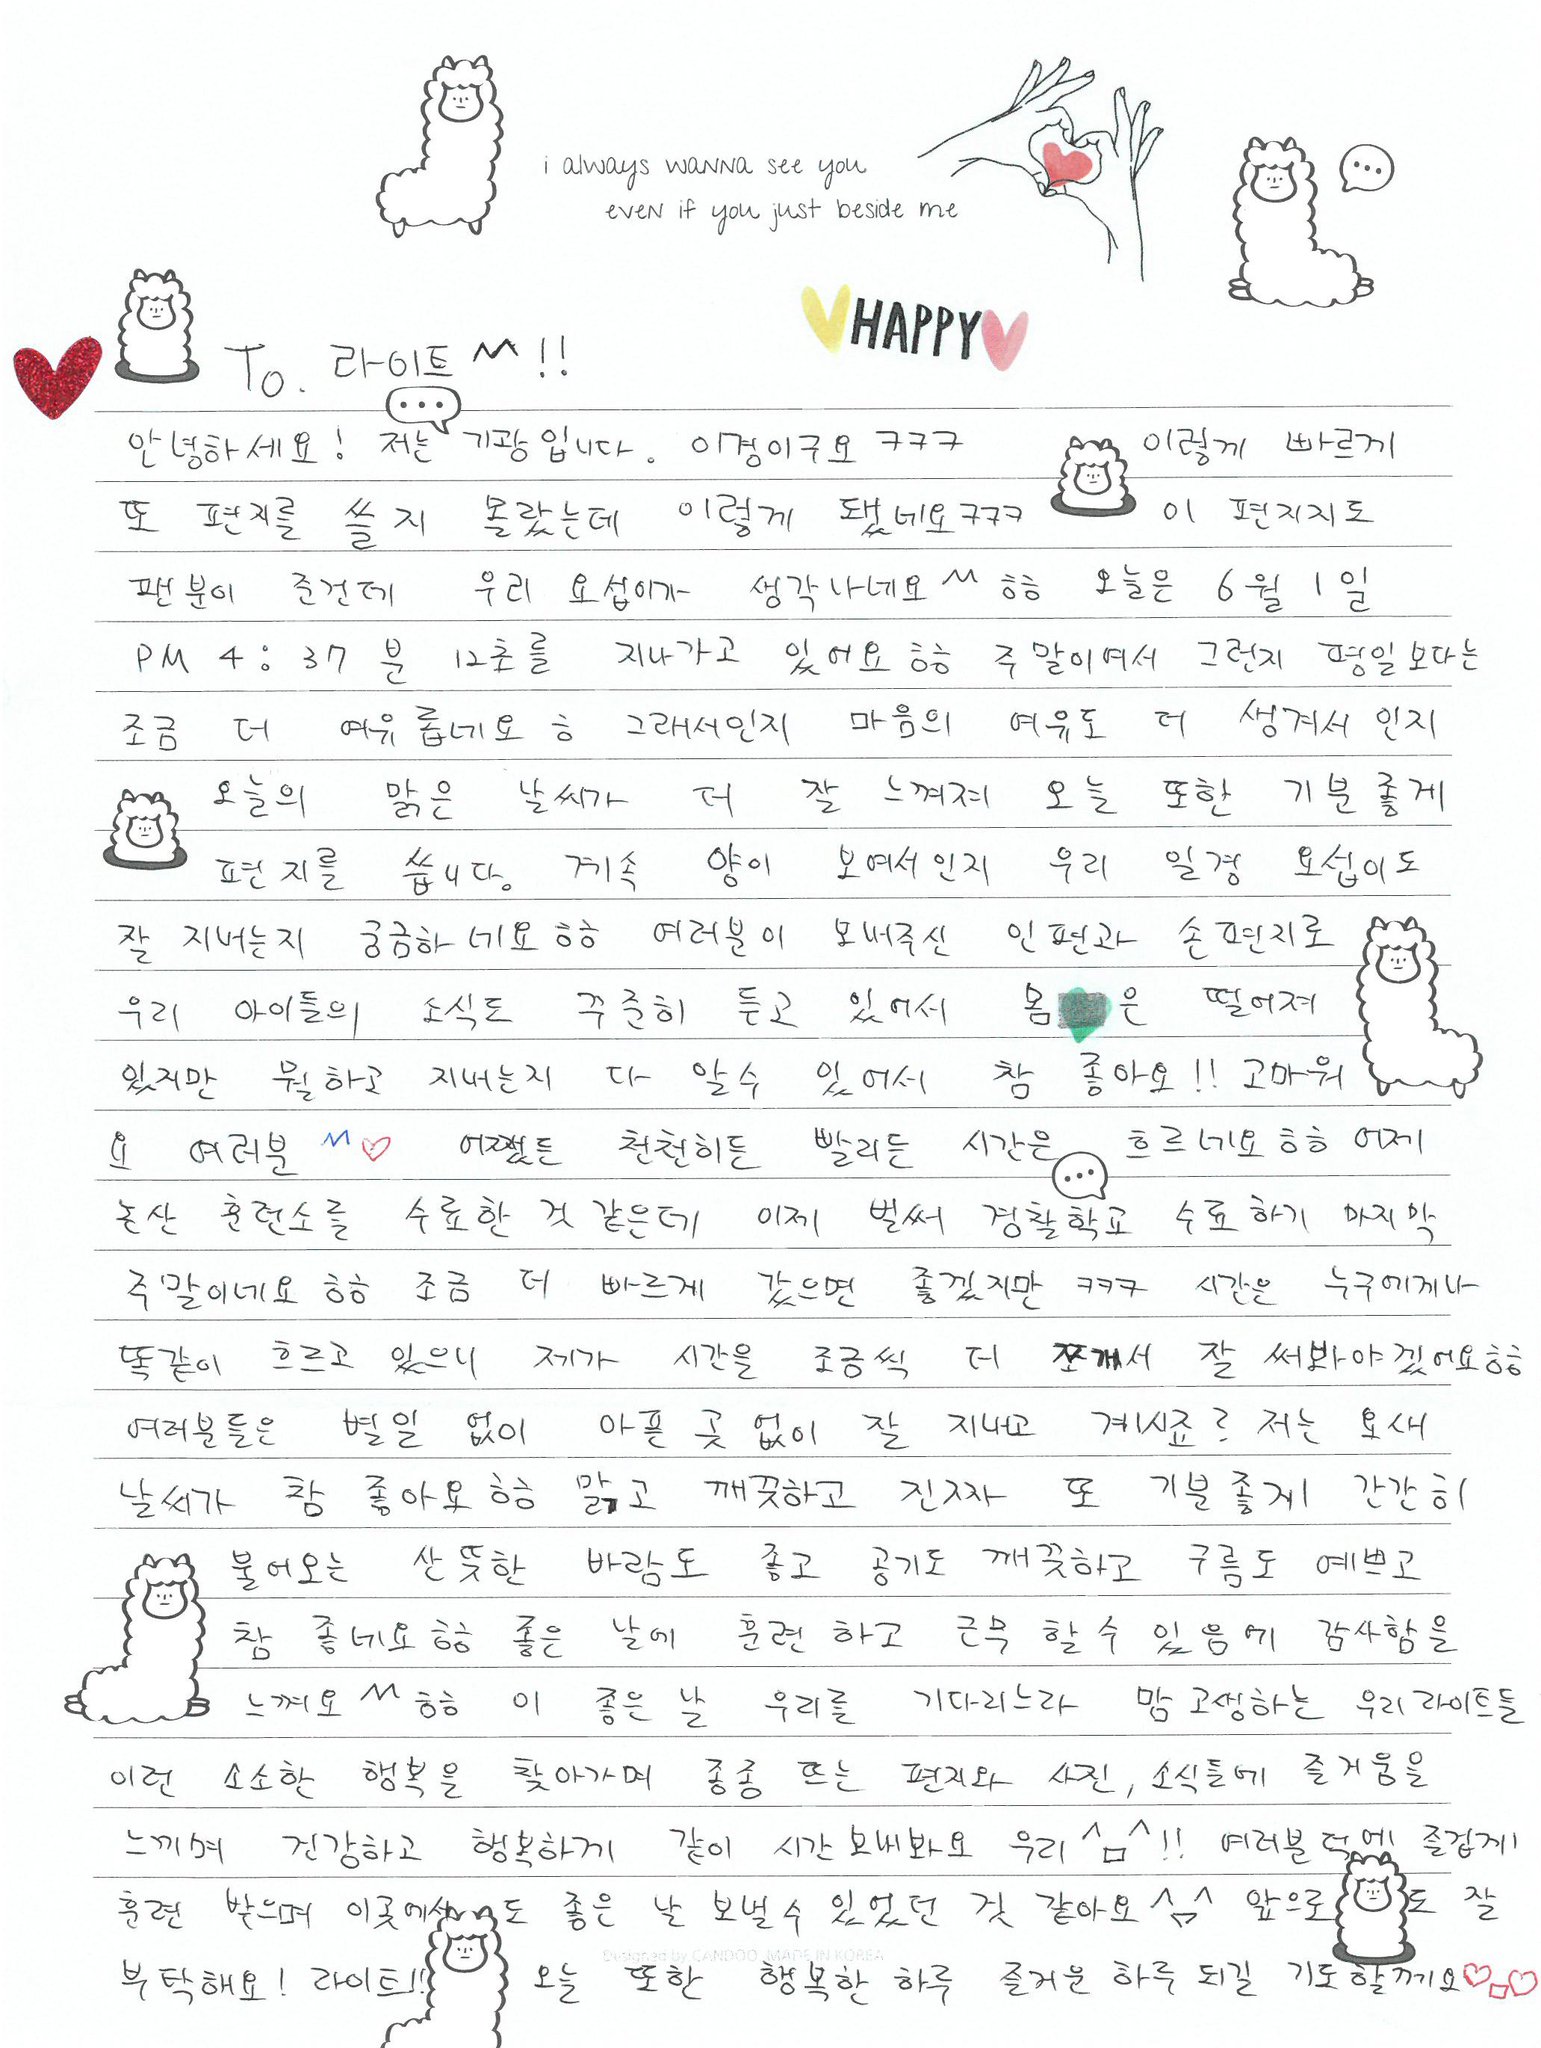 i always wanna see you
even if you just beside me
HAPPY
To. 라이트 ^^!!
안녕하세요! 저는 기광입니다. 이경이구요 ㅋㅋㅋ 이렇게 빠르게
또 편지를 쓸지 몰랐는데 이렇게 됐네요ㅋㅋㅋ 이 편지지도
팬분이 준건데 우리 요섭이가 생각나네요^^ ㅎㅎ 오늘은 6월 1일
PM 4:37분 12초를 지나가고 있어요ㅎㅎ 주말이여서 그런지 평일보다는
조금 더 여유롭네요ㅎ 그래서인지 마음의 여유도 더 생겨서인지
오늘의 맑은 날씨가 더 잘 느껴져 오늘 또한 기분좋게
편지를 씁니다. 계속 양이 보여서인지 우리 일경 요섭이도
잘 지내는지 궁금하네요ㅎㅎ 여러분이 보내주신 인편과 손편지로
우리 아이들의 소식도 꾸준히 듣고 있어서 몸은 떨어져
있지만 뭘하고 지내는지 다 알수 있어서 참 좋아요!! 고마워
요 여러분^^♡ 어쨌든 천천히든 빨리든 시간은 흐르네요ㅎㅎ 어제
논산 훈련소를 수료한 것 같은데 이제 벌써 경찰학교 수료하기 마지막
주말이네요ㅎㅎ 조금 더 빠르게 갔으면 좋겠지만 ㅋㅋㅋ 시간은 누구에게나
똑같이 흐르고 있으니 제가 시간을 조금씩 더 쪼개서 잘 써봐야겠어요ㅎㅎ
여러분들은 별일 없이 아픈 곳 없이 잘 지내고 계시죠? 저는 요새
날씨가 참 좋아요ㅎㅎ 맑고 깨끗하고 진짜 또 기분좋게 간간히
불어오는 산뜻한 바람도 좋고 공기도 깨끗하고 구름도 예쁘고
참 좋네요ㅎㅎ 좋은 날에 훈련하고 근무 할수 있음에 감사함을
느껴요^^ㅎㅎ 이 좋은 날 우리를 기다리느라 맘고생하는 우리 라이트들
이런 소소한 행복을 찾아가며 종종 뜨는 편지와 사진, 소식들에 즐거움을
느끼며 건강하고 행복하게 같이 시간 보내봐요 우리^ㅁ^!! 여러분 덕에 즐겁게
훈련 받으며 이곳에서도 좋은 날 보낼수 있었던 것 같아요^ㅁ^ 앞으로도 잘
부탁해요! 라이트!! 오늘 또한 행복한 하루 즐거운 하루 되길 기도할께요♡ㅁ♡
Designed by CANDOO MADE IN KOREA